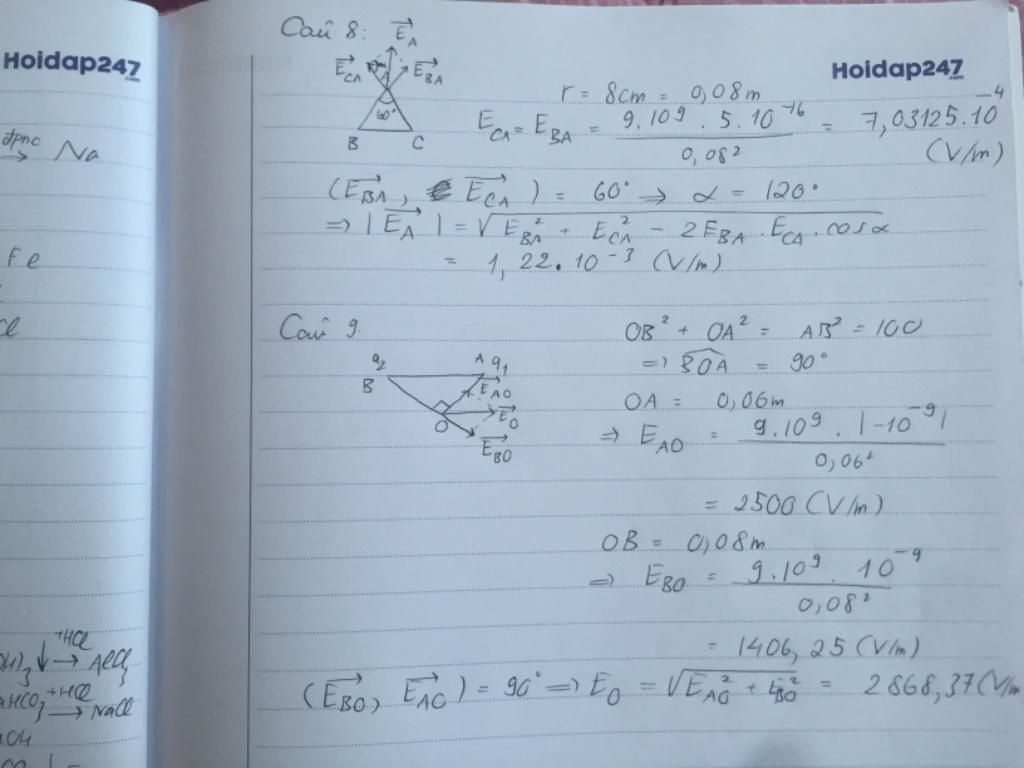 Hoidap247
.com
đpnc
→ Na
Fe
Cl
+HCl
↓ → AlCl₃
HCO₃ +HCl → NaCl
OH
Hoidap247
.com
Câu 8:
E⃗_A
E⃗_CA
E⃗_BA
A
60°
B
C
r = 8cm = 0,08m
E_CA = E_BA = 9.10⁹ . 5.10⁻¹⁶ / 0,08² = 7,03125.10⁻⁴ (V/m)
(E⃗_BA, E⃗_CA) = 60° ⇒ α = 120°
⇒ |E⃗_A| = √(E_BA² + E_CA² − 2E_BA . E_CA . cosα)
= 1,22.10⁻³ (V/m)
Câu 9.
q₂
B
A q₁
E⃗_AO
O
E⃗_O
E⃗_BO
OB² + OA² = AB² = 100
⇒ BOA = 90°
OA = 0,06m
⇒ E_AO = 9.10⁹ . |-10⁻⁹| / 0,06²
= 2500 (V/m)
OB = 0,08m
⇒ E_BO = 9.10⁹ . 10⁻⁹ / 0,08²
= 1406,25 (V/m)
(E⃗_BO, E⃗_AO) = 90° ⇒ E_O = √(E_AO² + E_BO²) = 2868,37 (V/m